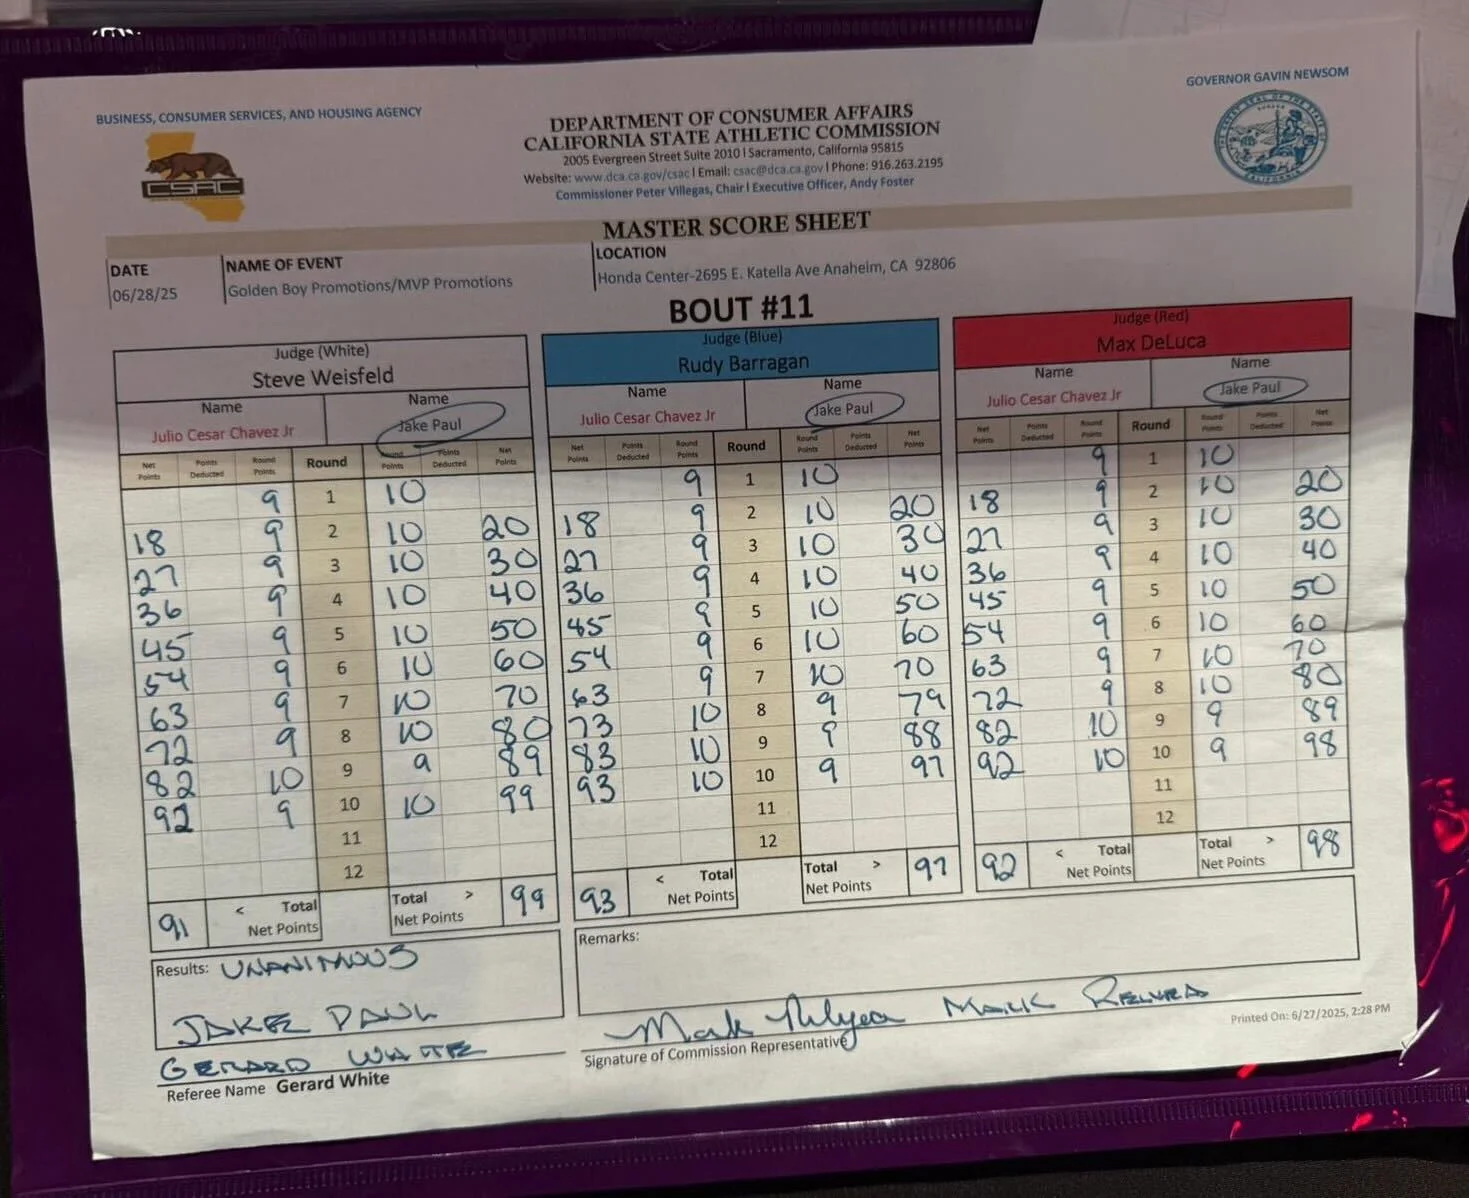 BUSINESS, CONSUMER SERVICES, AND HOUSING AGENCY
GOVERNOR GAVIN NEWSOM
CSAC
DEPARTMENT OF CONSUMER AFFAIRS
CALIFORNIA STATE ATHLETIC COMMISSION
2005 Evergreen Street Suite 2010 I Sacramento, California 95815
Website: www.dca.ca.gov/csac I Email: csac@dca.ca.gov I Phone: 916.263.2195
Commissioner Peter Villegas, Chair I Executive Officer, Andy Foster
MASTER SCORE SHEET
DATE
06/28/25
NAME OF EVENT
Golden Boy Promotions/MVP Promotions
LOCATION
Honda Center-2695 E. Katella Ave Anaheim, CA 92806
BOUT #11
Judge (White)
Steve Weisfeld
Name Name
Julio Cesar Chavez Jr Jake Paul
Net Points Points Deducted Round Points Round Round Points Points Deducted Net Points
9 1 10
18 9 2 10 20
27 9 3 10 30
36 9 4 10 40
45 9 5 10 50
54 9 6 10 60
63 9 7 10 70
72 9 8 10 80
82 10 9 9 89
92 9 10 10 99
11
12
91 < Total Net Points Total > Net Points 99
Judge (Blue)
Rudy Barragan
Name Name
Julio Cesar Chavez Jr Jake Paul
Net Points Points Deducted Round Points Round Round Points Points Deducted Net Points
9 1 10
18 9 2 10 20
27 9 3 10 30
36 9 4 10 40
45 9 5 10 50
54 9 6 10 60
63 9 7 10 70
73 10 8 9 79
83 10 9 9 88
93 10 10 9 97
11
12
93 < Total Net Points Total > Net Points 97
Judge (Red)
Max DeLuca
Name Name
Julio Cesar Chavez Jr Jake Paul
Net Points Points Deducted Round Points Round Round Points Points Deducted Net Points
9 1 10
18 9 2 10 20
27 9 3 10 30
36 9 4 10 40
45 9 5 10 50
54 9 6 10 60
63 9 7 10 70
72 9 8 10 80
82 10 9 9 89
92 10 10 9 98
11
12
92 < Total Net Points Total > Net Points 98
Results: UNANIMOUS
JAKE PAUL
Remarks:
GERARD WHITE
Referee Name Gerard White
Mark Relyea MARK RELYEA
Signature of Commission Representative
Printed On: 6/27/2025, 2:28 PM